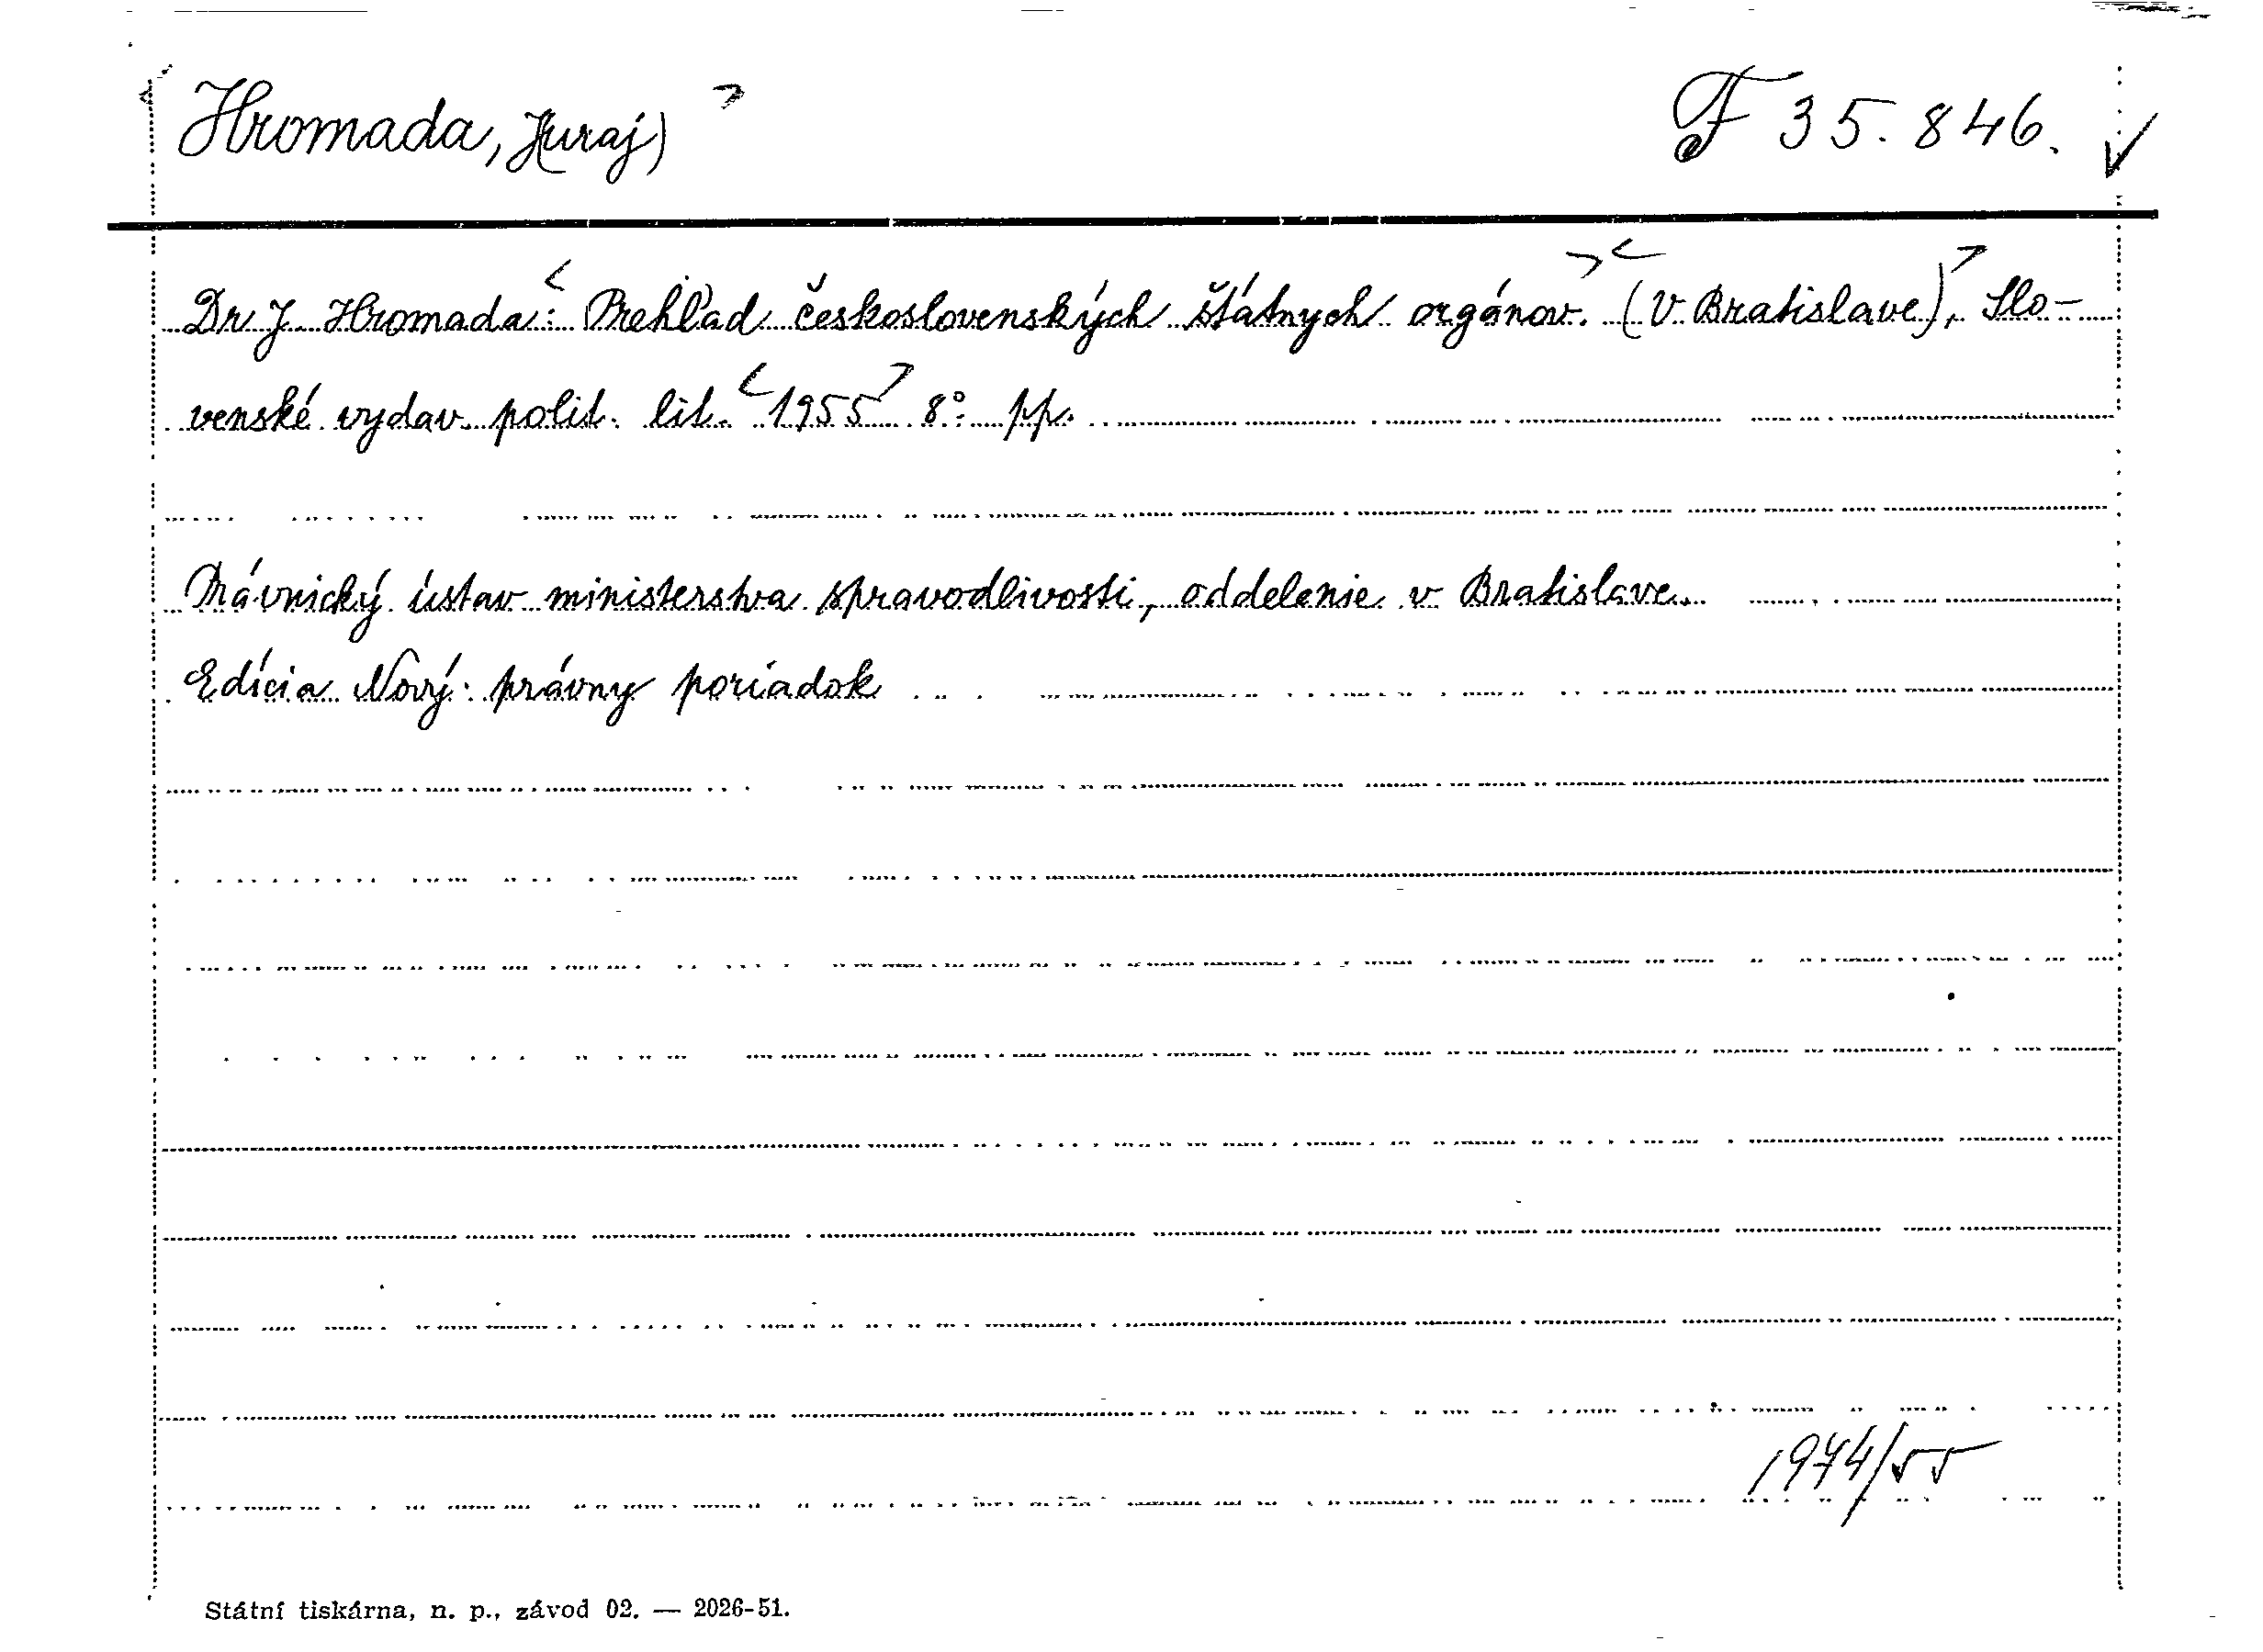 Hromada, Juraj) F 35.846.
Dr J. Hromada: Prehľad československých štátnych orgánov. (V Bratislave), Slo-
venské vydav. polit. lit. 1955 8° pp.
Právnický ústav ministerstva spravodlivosti, oddelenie v Bratislave.
Edícia Nový právny poriadok
1974/55
Státní tiskárna, n. p., závod 02. — 2026-51.